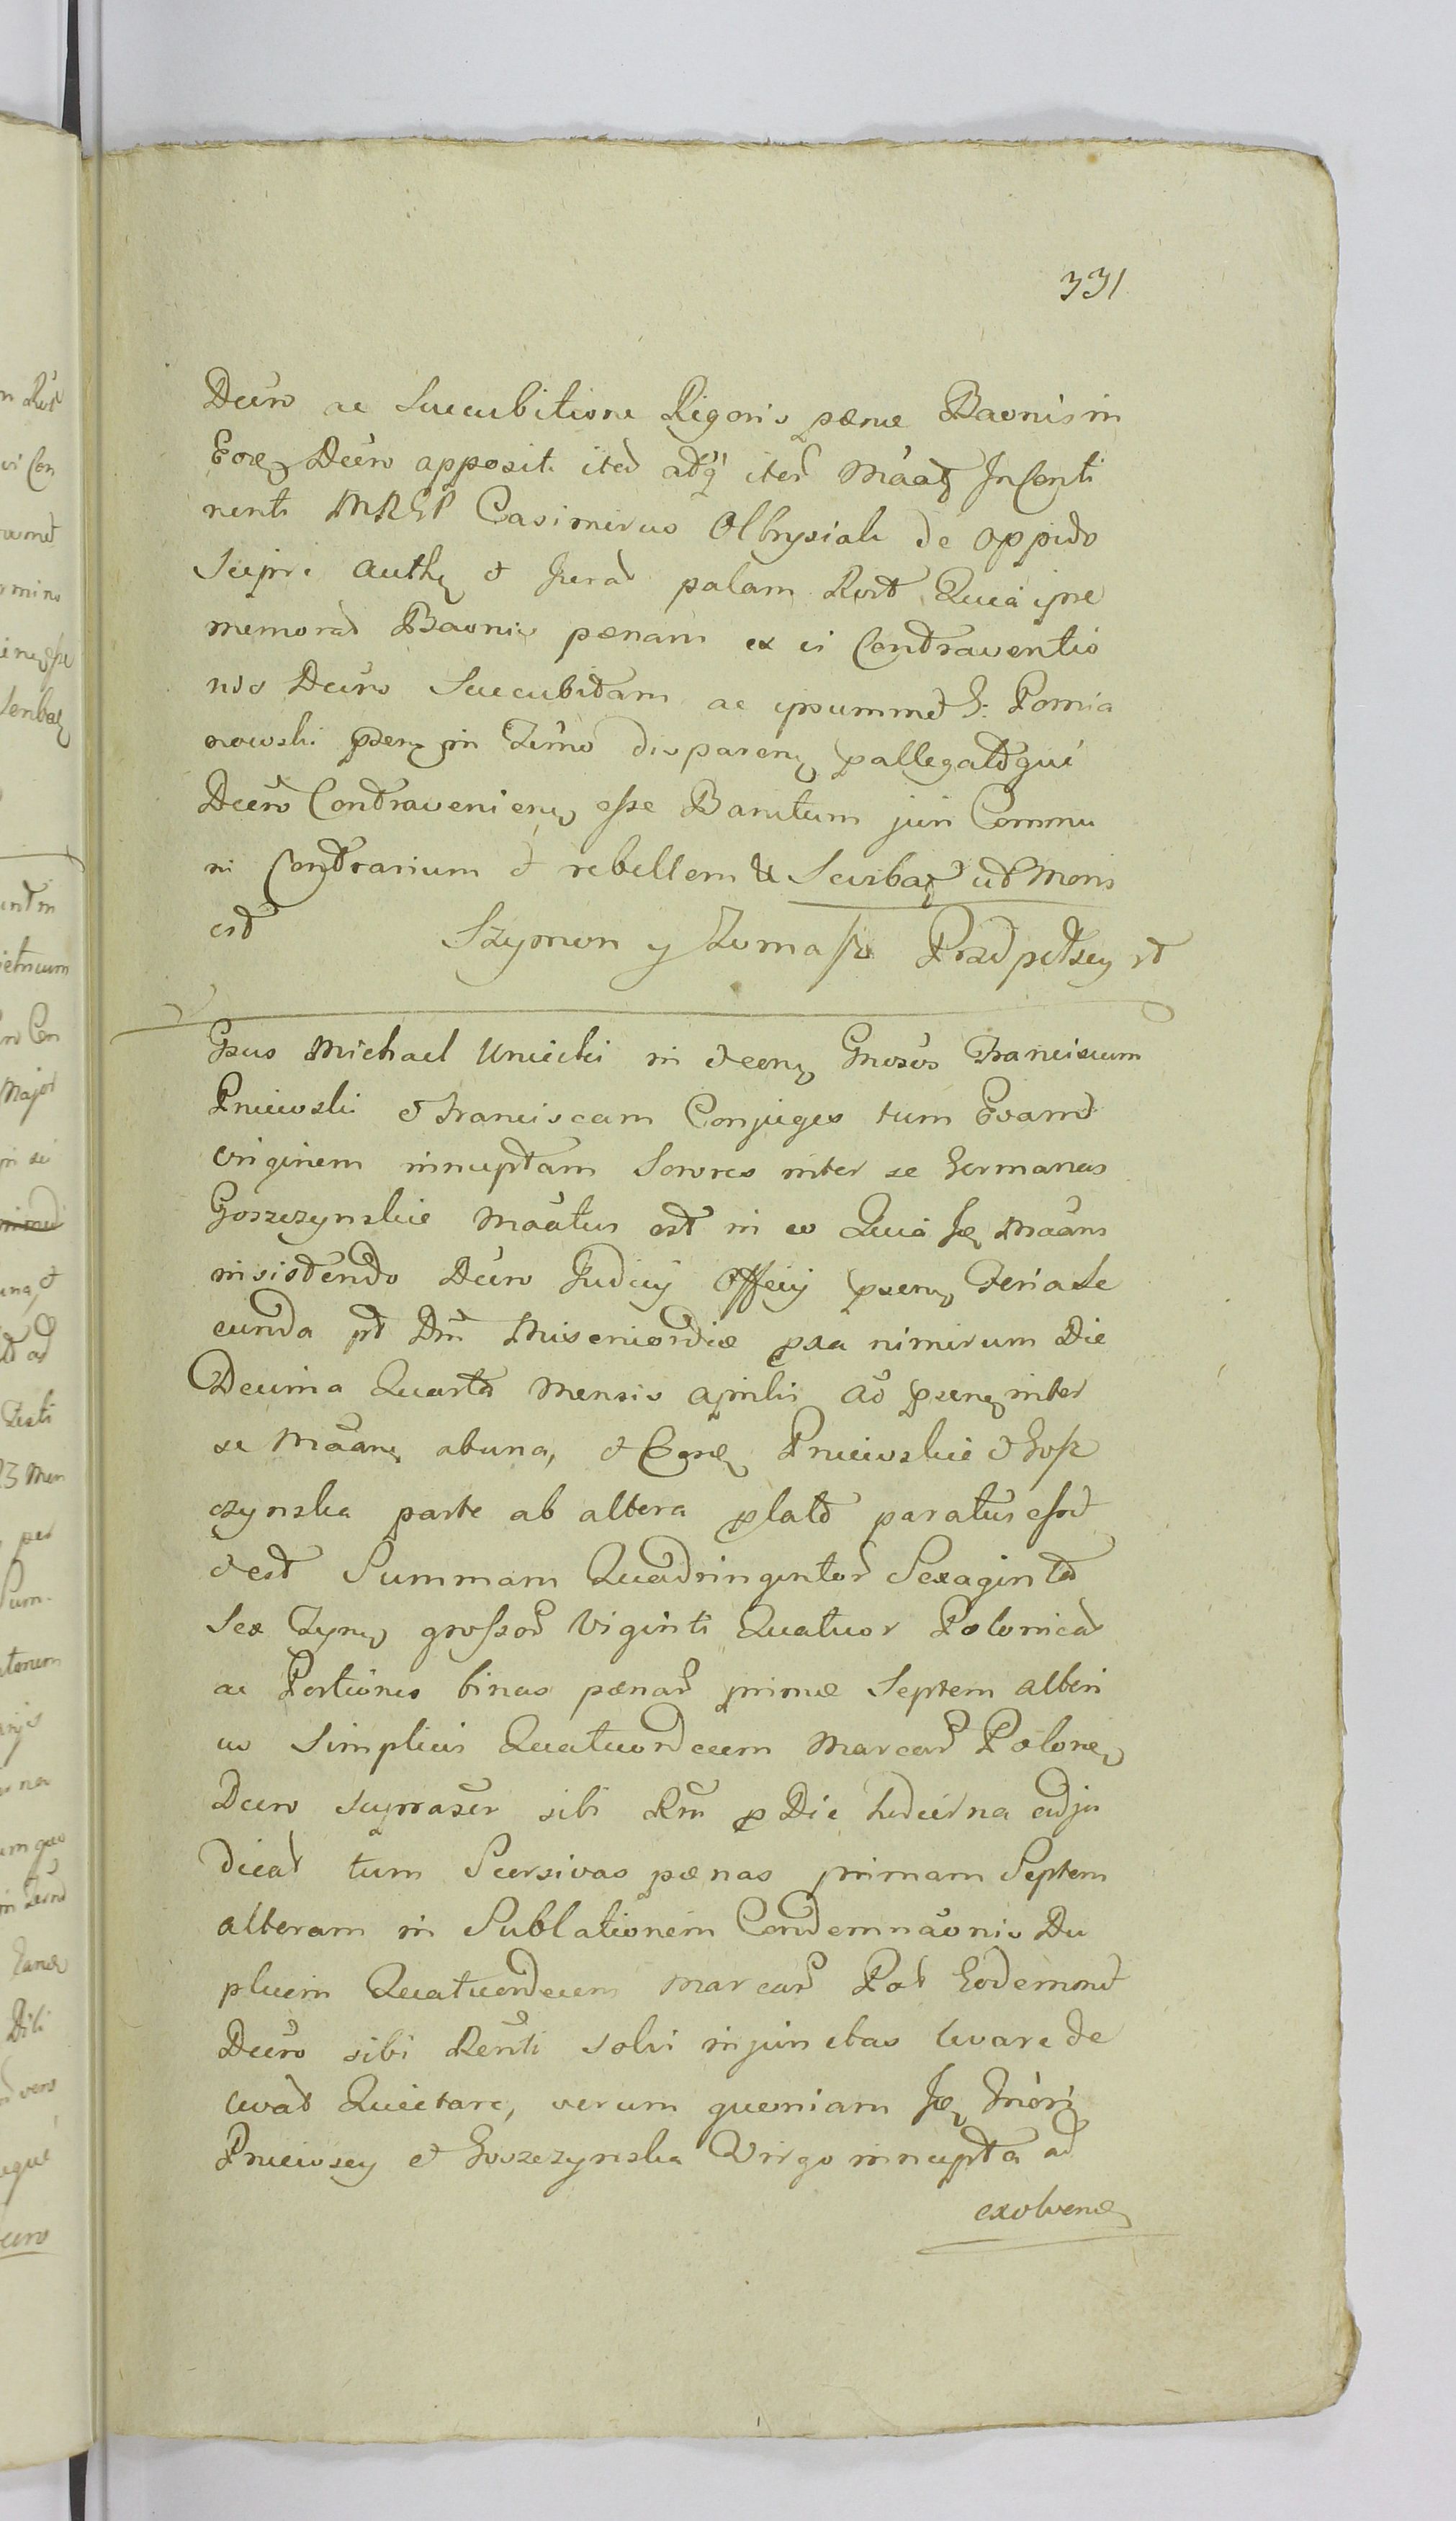 331
Decro ac Succubitione Rigoris pænæ Baonis in
Eore Decro apposit ited adq iter Maat In Conti
nenti MRGP Casimirus Olbrysiak de oppido
Scipri auth et Jurat palam Rect Quia ipse
memorat Baonis pænam ex vi Contraventio
nis Decro Succubitam ac ipsummet G: Pomia
nowski psen in Termo disparen pallegatoqui
Decro Contravenien esse Banitum juri Commu
ni Contrarium et rebellem & Scirbat ut Moris
est Szymon y Tomasz Przdpełscy rt
Gsus Michael Uniecki in et con Gnosos Franciscum
Pniewski et Franciscam Conjuges tum Evamet
virginem innuptam Sorores inter se Germanas
Goszczynskie Maatus est in eo Quia Je Maans
insistendo Decro Judicij Officij psen Feria Se
cunda pt Dni Misericordiæ pxa nimirum Die
Decima Quarta Mensis aprilis Ao psen inter
se Maane ab una, et Cone Pniewskie et Gosz
czynska parte ab altera plato paratus esset
et est Summam Quadringentor Sexaginta
Sex Zyne grossor Viginti Quatuor Polonical
ac Portiones binas pænar primæ Septem alteri
us Simplicis Quatuordecem Marcar Polone
Decro supraser sibi Rm p Die hodierna adju
dicat tum Scersivas pænas primam Septem
alteram in Sublationem Condemnaonis Du
plicem Quatuordecem Marcar Pol Eodemmet
Decro sibi Renti solvi injunctas levare de
levat Quietare, verum quoniam Je Jnori
Pniewscy et Goszczynska Virgo innupta ad
exolvene